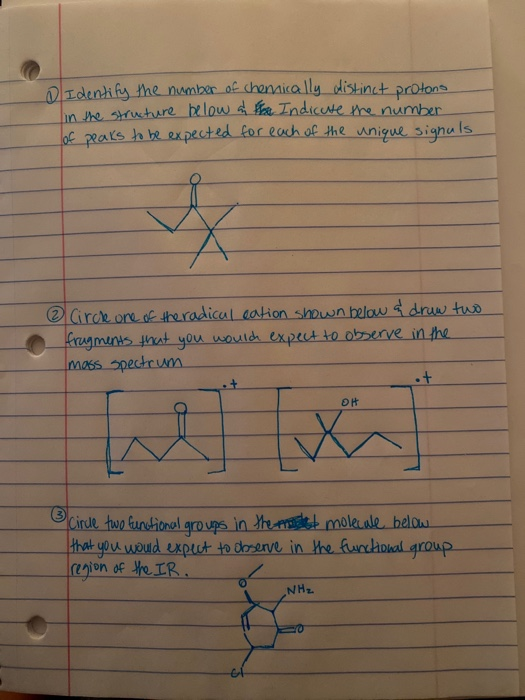 ① Identify the number of chemically distinct protons
in the structure below & Indicate the number
of peaks to be expected for each of the unique signals
O
② Circle one of the radical cation shown below & draw two
fragments that you would expect to observe in the
mass spectrum
.+ .+
O OH
③ Circle two functional groups in the molecule below
that you would expect to observe in the functional group
region of the IR.
O NH₂
O
Cl